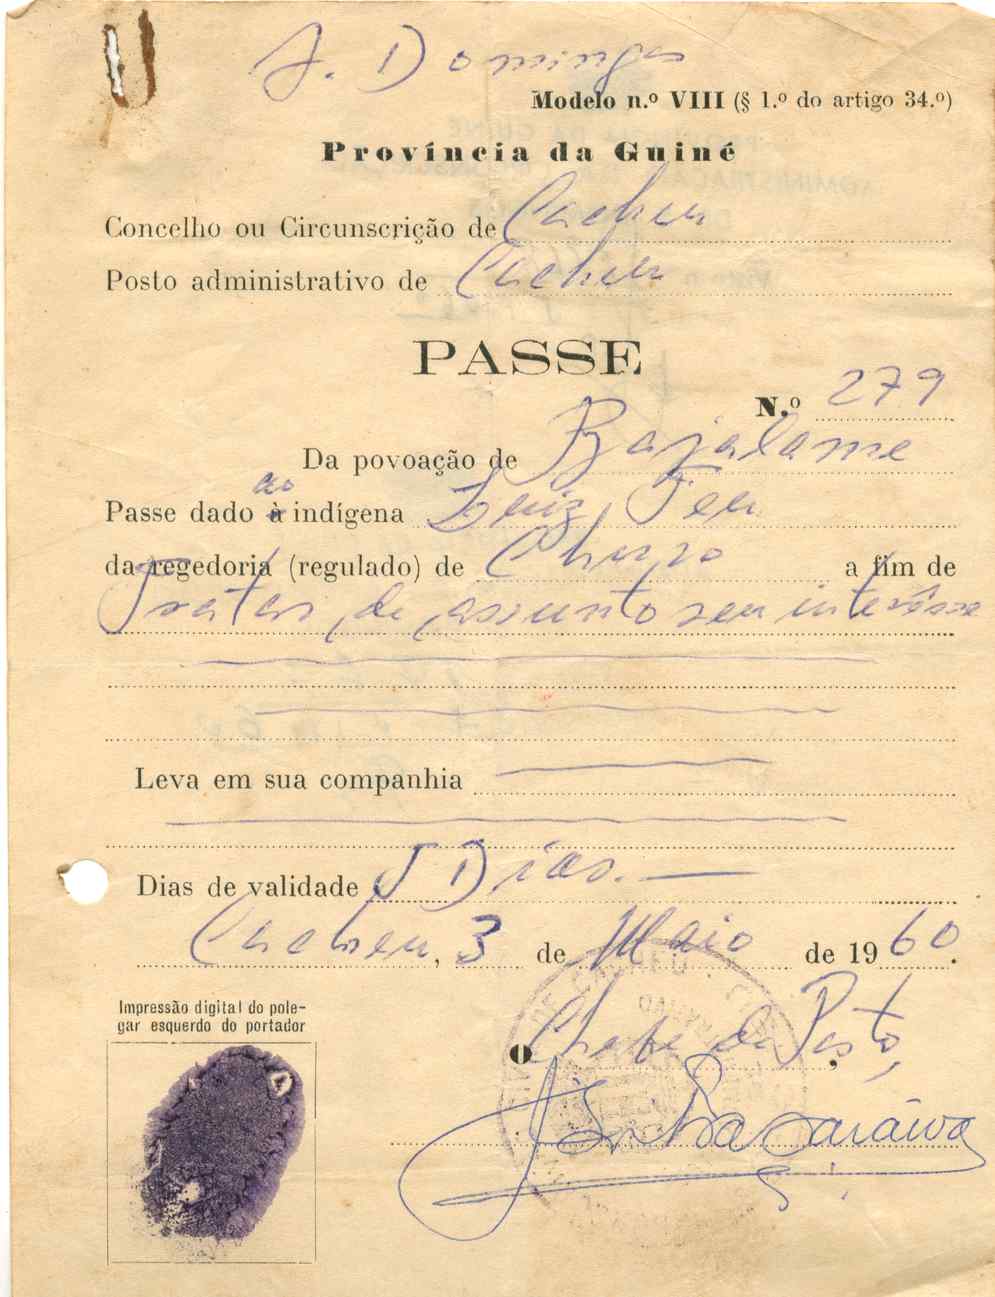 A. Domingos
Modelo n.º VIII (§ 1.º do artigo 34.º)
Província da Guiné
Concelho ou Circunscrição de Cacheu
Posto administrativo de Cacheu
PASSE
N.º 279
Da povoação de Bajalame
ao
Passe dado à indígena Luiz
da regedoria (regulado) de Churo a fim de
Tratar de assunto seu interêsse
Leva em sua companhia
Dias de validade 5 Dias.
Cacheu, 3 de Maio de 1960.
Impressão digital do pole-
gar esquerdo do portador
O Chefe do Posto,
Saraiva